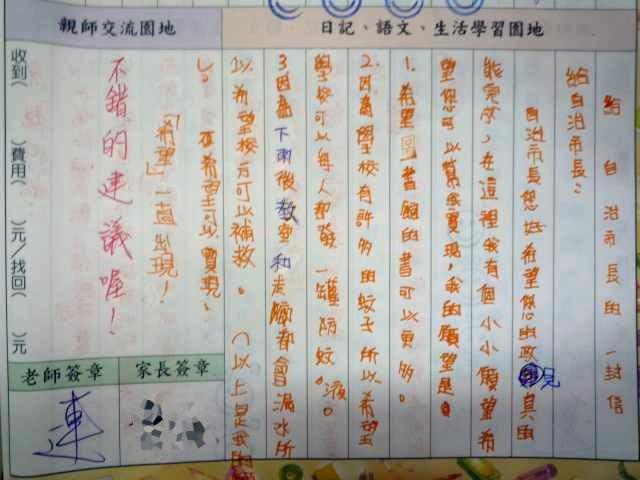 日記、語文、生活學習園地
給自治市長的一封信
給自治市長：
自治市長您好希望您的政見真的
能完成，在這裡我有個小小願望希
望您可以幫我實現，我的願望是。
1.希望圖書館的書可以更多。
2.因為學校有許多的蚊子所以希望
學校可以每人都發一罐防蚊液。
3.因為下雨後教室和走廊都會漏水所
以希望校方可以補救。（以上是我的
希望可以實現。
「希望」一直出現！
親師交流園地
不錯的建議喔！
收到（ ）費用（ ）元／找回（ ）元
老師簽章
家長簽章
連